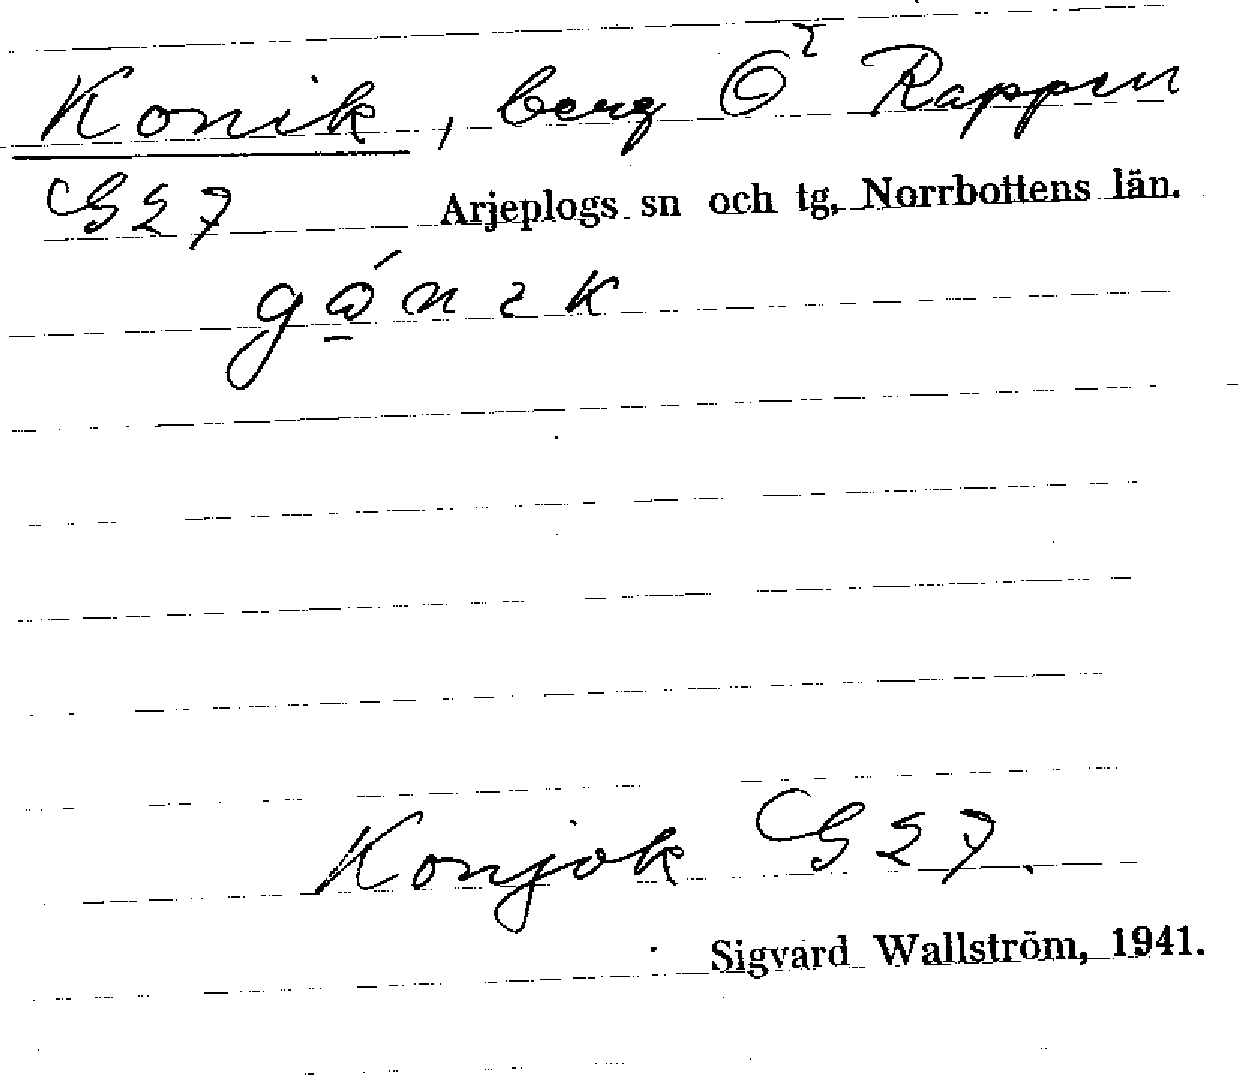 Konik, berg Ö Rappen
G27 Arjeplogs sn och tg, Norrbottens län.
Konjok G27.
Sigvard Wallström, 1941.